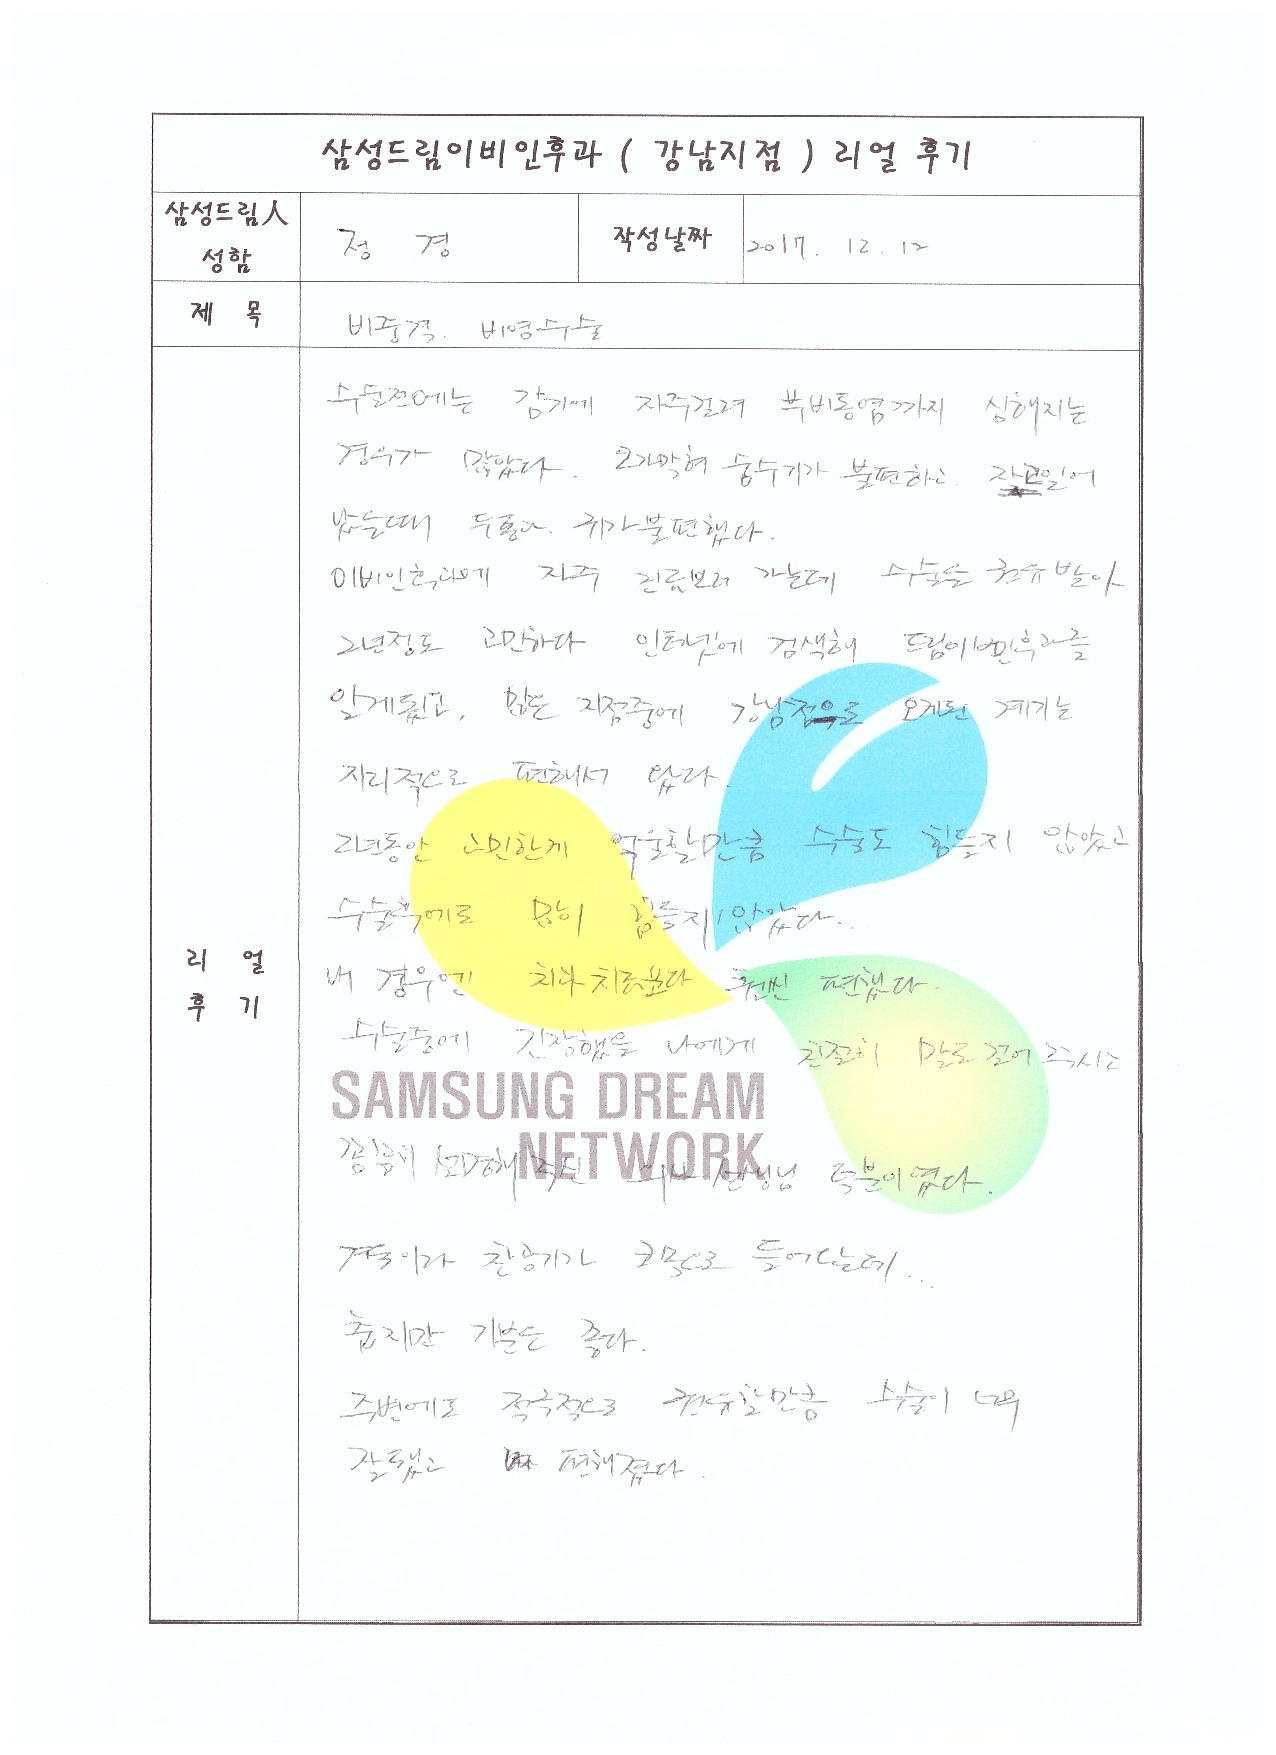 삼성드림이비인후과 ( 강남지점 ) 리얼 후기
삼성드림人 성함
정 경
작성날짜
2017. 12. 12
제 목
비중격. 비염수술
리 얼 후 기
수술전에는 감기에 자주걸려 부비동염까지 심해지는
경우가 많았다. 코가막혀 숨쉬기가 불편하고. 자고일어
났을때 두통과. 귀가불편했다.
이비인후과에 자주 진료보러 가는데 수술을 권유받아
2년정도 고민하다 인터넷에 검색해 드림이비인후과를
알게됬고, 많은 지점중에 강남점으로 오게된 계기는
지리적으로 편해서 왔다.
2년동안 고민한게 억울할만큼 수술도 힘들지 않았고
수술후에도 많이 힘들지 않았다..
내 경우엔 치과치료보다 훨씬 편했다.
수술중에 긴장했을 나에게 친절히 말로 걸어주시는
SAMSUNG DREAM
NETWORK
꼼꼼히 의사선생님 덕분이였다.
겨울이라 찬공기가 코목으로 들어오는데...
춥지만 기분은 좋다.
주변에도 적극적으로 권유할만큼 수술이 너무
잘됐고 편해졌다.